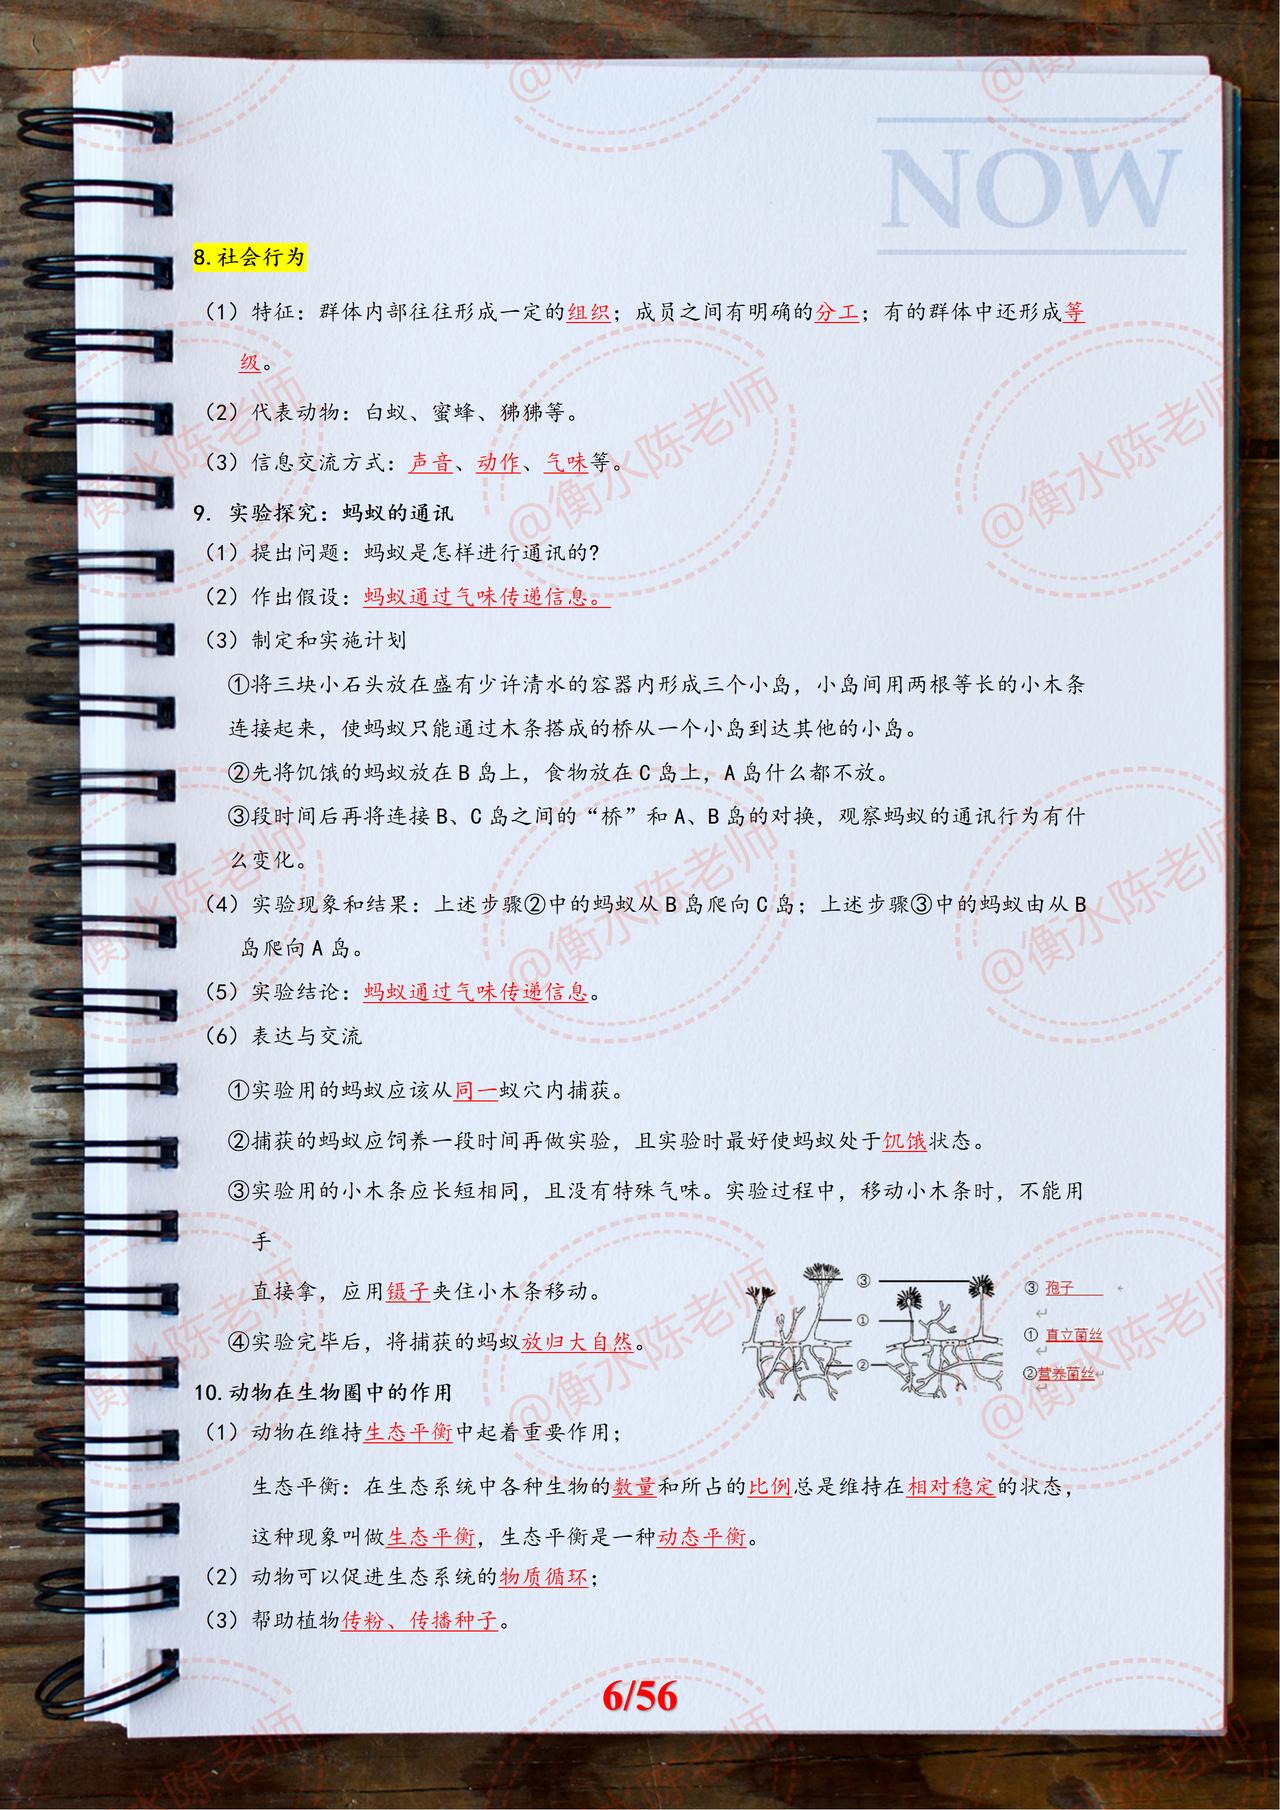 NOW
8.社会行为
（1）特征：群体内部往往形成一定的组织；成员之间有明确的分工；有的群体中还形成等
级。
（2）代表动物：白蚁、蜜蜂、狒狒等。
（3）信息交流方式：声音、动作、气味等。
9. 实验探究：蚂蚁的通讯
（1）提出问题：蚂蚁是怎样进行通讯的?
（2）作出假设：蚂蚁通过气味传递信息。
（3）制定和实施计划
①将三块小石头放在盛有少许清水的容器内形成三个小岛，小岛间用两根等长的小木条
连接起来，使蚂蚁只能通过木条搭成的桥从一个小岛到达其他的小岛。
②先将饥饿的蚂蚁放在B岛上，食物放在C岛上，A岛什么都不放。
③段时间后再将连接B、C岛之间的“桥”和A、B岛的对换，观察蚂蚁的通讯行为有什
么变化。
（4）实验现象和结果：上述步骤②中的蚂蚁从B岛爬向C岛；上述步骤③中的蚂蚁由从B
岛爬向A岛。
（5）实验结论：蚂蚁通过气味传递信息。
（6）表达与交流
①实验用的蚂蚁应该从同一蚁穴内捕获。
②捕获的蚂蚁应饲养一段时间再做实验，且实验时最好使蚂蚁处于饥饿状态。
③实验用的小木条应长短相同，且没有特殊气味。实验过程中，移动小木条时，不能用
手
直接拿，应用镊子夹住小木条移动。
④实验完毕后，将捕获的蚂蚁放归大自然。
③
①
②
③ 孢子
① 直立菌丝
②营养菌丝
10.动物在生物圈中的作用
（1）动物在维持生态平衡中起着重要作用；
生态平衡：在生态系统中各种生物的数量和所占的比例总是维持在相对稳定的状态，
这种现象叫做生态平衡，生态平衡是一种动态平衡。
（2）动物可以促进生态系统的物质循环；
（3）帮助植物传粉、传播种子。
6/56
@衡水陈老师